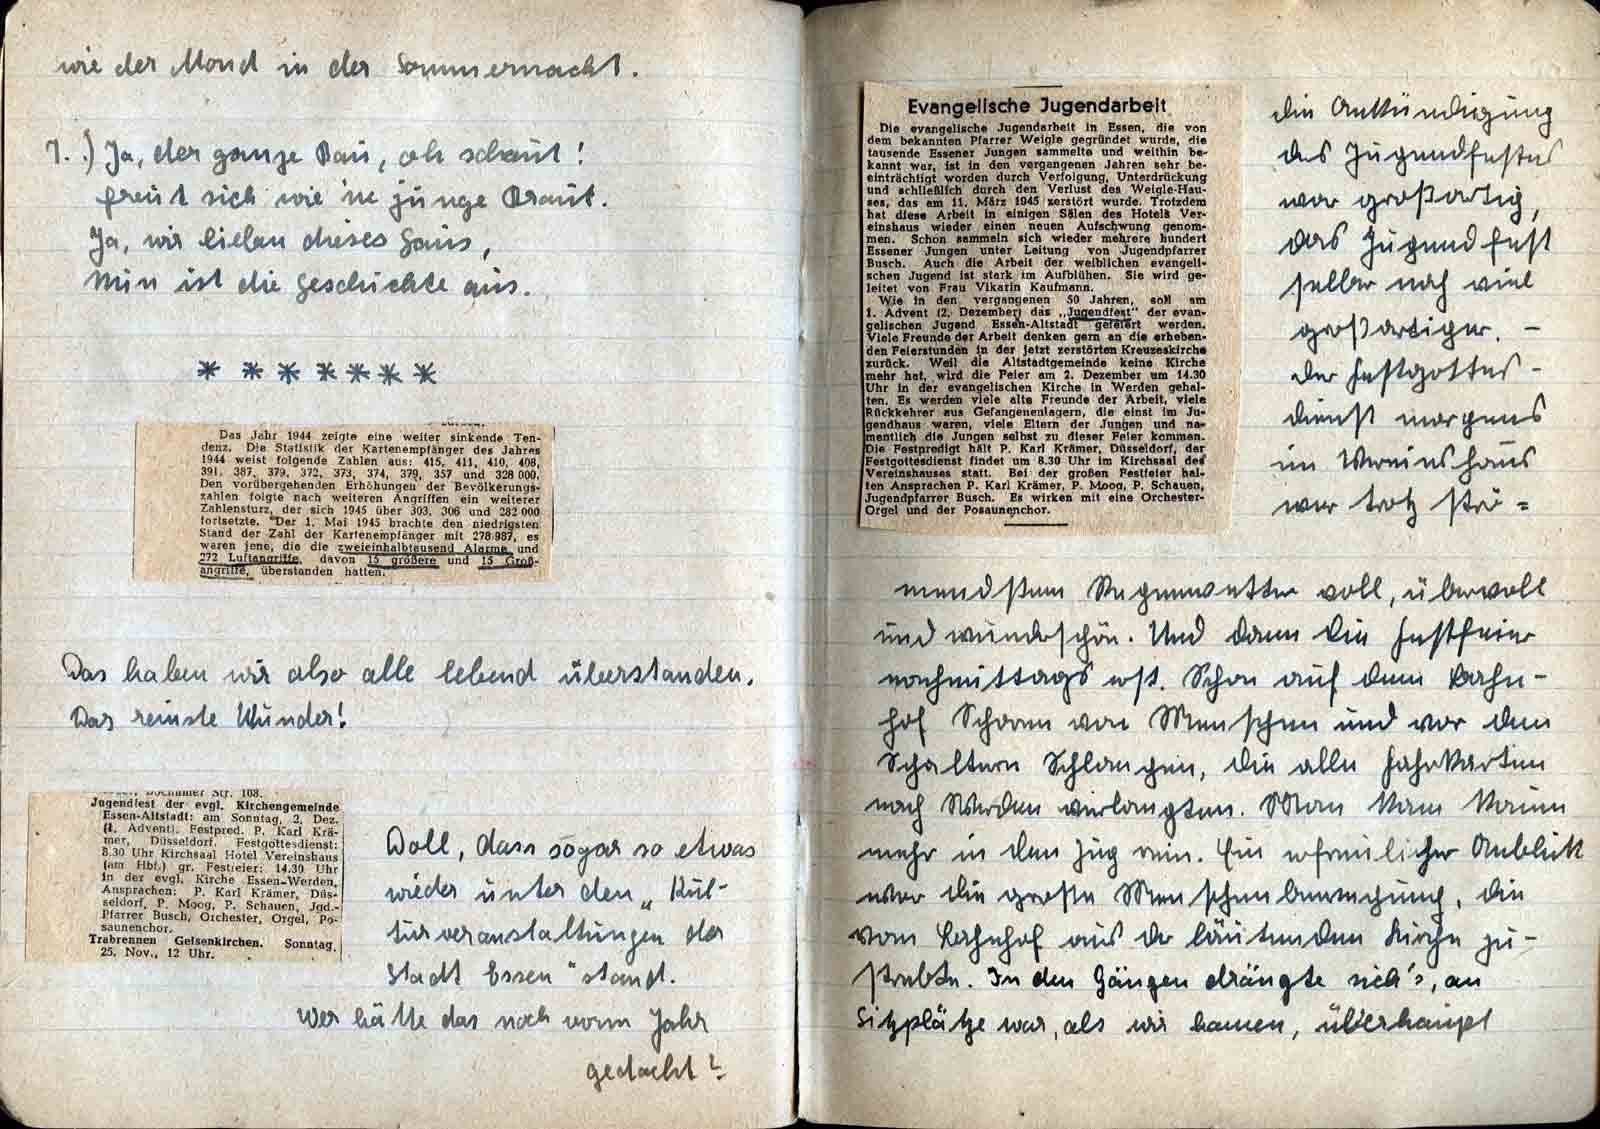 wie der Mond in der Sommernacht.
7.) Ja, der ganze Bau, oh schaut!
freut sich wie 'ne junge Braut.
Ja, wir lieben dieses Haus,
Nun ist die Geschichte aus.
* * * * * * *
Das Jahr 1944 zeigte eine weiter sinkende Ten-
denz. Die Statistik der Kartenempfänger des Jahres
1944 weist folgende Zahlen aus: 415, 411, 410, 408,
391, 387, 379, 372, 373, 374, 379, 357 und 328 000.
Den vorübergehenden Erhöhungen der Bevölkerungs-
zahlen folgte nach weiteren Angriffen ein weiterer
Zahlensturz, der sich 1945 über 303, 306 und 282 000
fortsetzte. Der 1. Mai 1945 brachte den niedrigsten
Stand der Zahl der Kartenempfänger mit 278 987, es
waren jene, die die zweieinhalbtausend Alarme und
272 Luftangriffe, davon 15 größere und 15 Groß-
angriffe, überstanden hatten.
Das haben wir also alle lebend überstanden.
Das reinste Wunder!
Bochumer Str. 108.
Jugendfest der evgl. Kirchengemeinde
Essen-Altstadt: am Sonntag, 2. Dez.
(1. Advent). Festpred. P. Karl Krä-
mer, Düsseldorf. Festgottesdienst:
8.30 Uhr Kirchsaal Hotel Vereinshaus
(am Hbf.) gr. Festfeier: 14.30 Uhr
in der evgl. Kirche Essen-Werden.
Ansprachen: P. Karl Krämer, Düs-
seldorf, P. Moog, P. Schauen, Jgd.-
Pfarrer Busch, Orchester, Orgel, Po-
saunenchor.
Trabrennen Gelsenkirchen. Sonntag,
25. Nov., 12 Uhr.
Doll, dass sogar so etwas
wieder unter den „Kul-
turveranstaltungen der
Stadt Essen" stand.
Wer hätte das noch vorm Jahr
gedacht?
Evangelische Jugendarbeit
Die evangelische Jugendarbeit in Essen, die von
dem bekannten Pfarrer Weigle gegründet wurde, die
tausende Essener Jungen sammelte und weithin be-
kannt war, ist in den vergangenen Jahren sehr be-
einträchtigt worden durch Verfolgung, Unterdrückung
und schließlich durch den Verlust des Weigle-Hau-
ses, das am 11. März 1945 zerstört wurde. Trotzdem
hat diese Arbeit in einigen Sälen des Hotels Ver-
einshaus wieder einen neuen Aufschwung genom-
men. Schon sammeln sich wieder mehrere hundert
Essener Jungen unter Leitung von Jugendpfarrer
Busch. Auch die Arbeit der weiblichen evangeli-
schen Jugend ist stark im Aufblühen. Sie wird ge-
leitet von Frau Vikarin Kaufmann.
Wie in den vergangenen 50 Jahren, soll am
1. Advent (2. Dezember) das „Jugendfest" der evan-
gelischen Jugend Essen-Altstadt gefeiert werden.
Viele Freunde der Arbeit denken gern an die erheben-
den Feierstunden in der jetzt zerstörten Kreuzeskirche
zurück. Weil die Altstadtgemeinde keine Kirche
mehr hat, wird die Feier am 2. Dezember um 14.30
Uhr in der evangelischen Kirche in Werden gehal-
ten. Es werden viele alte Freunde der Arbeit, viele
Rückkehrer aus Gefangenenlagern, die einst im Ju-
gendhaus waren, viele Eltern der Jungen und na-
mentlich die Jungen selbst zu dieser Feier kommen.
Die Festpredigt hält P. Karl Krämer, Düsseldorf, der
Festgottesdienst findet um 8.30 Uhr im Kirchsaal des
Vereinshauses statt. Bei der großen Festfeier hal-
ten Ansprachen P. Karl Krämer, P. Moog, P. Schauen,
Jugendpfarrer Busch. Es wirken mit eine Orchester-
Orgel und der Posaunenchor.
die Ankündigung
des Jugendfestes
war großartig,
das Jugendfest
selber noch viel
großartiger. –
der Festgottes-
dienst morgens
im Vereinshaus
war trotz strö=
mendstem Regenwetter voll, übervoll
und wunderschön. Und dann die Festfeier
nachmittags erst. Schon auf dem Bahn-
hof Scharen von Menschen und vor den
Schaltern Schlangen, die alle Fahrkarten
nach Werden verlangten. Man kam kaum
mehr in den Zug rein. Ein erfreulicher Anblick
war die große Menschenbewegung, die
vom Bahnhof aus der läutenden Kirche zu-
strebte. In den Gängen drängte sich's, an
Sitzplätze war, als wir kamen, überhaupt